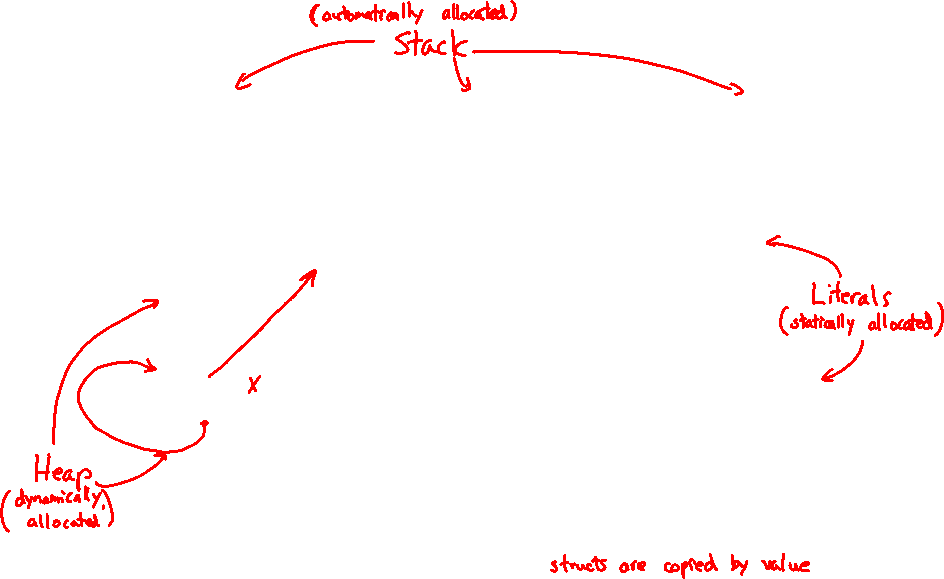 (automatically allocated)
Stack
Literals
(statically allocated)
x
Heap
(dynamically
allocated)
structs are copied by value